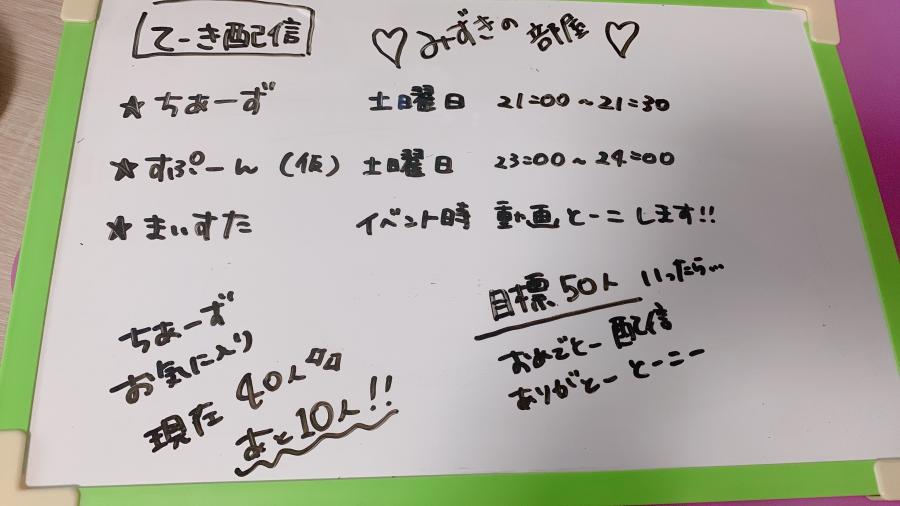 てーき配信 ♡みずきの部屋♡
☆ちあーず 土日曜日 21:00~21:30
☆すぷーん(仮) 土曜日 23:00~24:00
☆まいすた イベント時 動画とーこします!!
ちあーず
お気に入り
現在40人
あと10人!!
目標50人いったら...
おめでとー配信
ありがとーとーこー